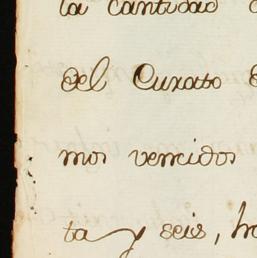 la cantidad
del Curato
mos vencidos
ta y seis,